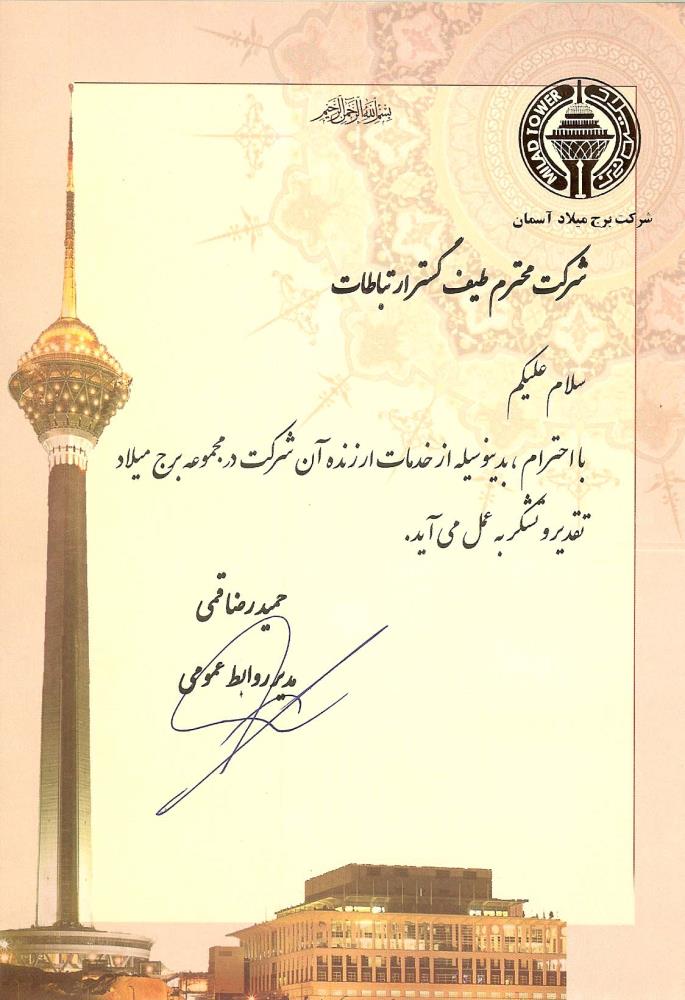 بسم الله الرحمن الرحیم
MILAD TOWER
برج میلاد
شرکت برج میلاد آسمان
شرکت محترم طیف گستر ارتباطات
سلام علیکم
با احترام، بدینوسیله از خدمات ارزنده آن شرکت در مجموعه برج میلاد
تقدیر و تشکر به عمل می آید.
حمید رضا قمی
مدیر روابط عمومی